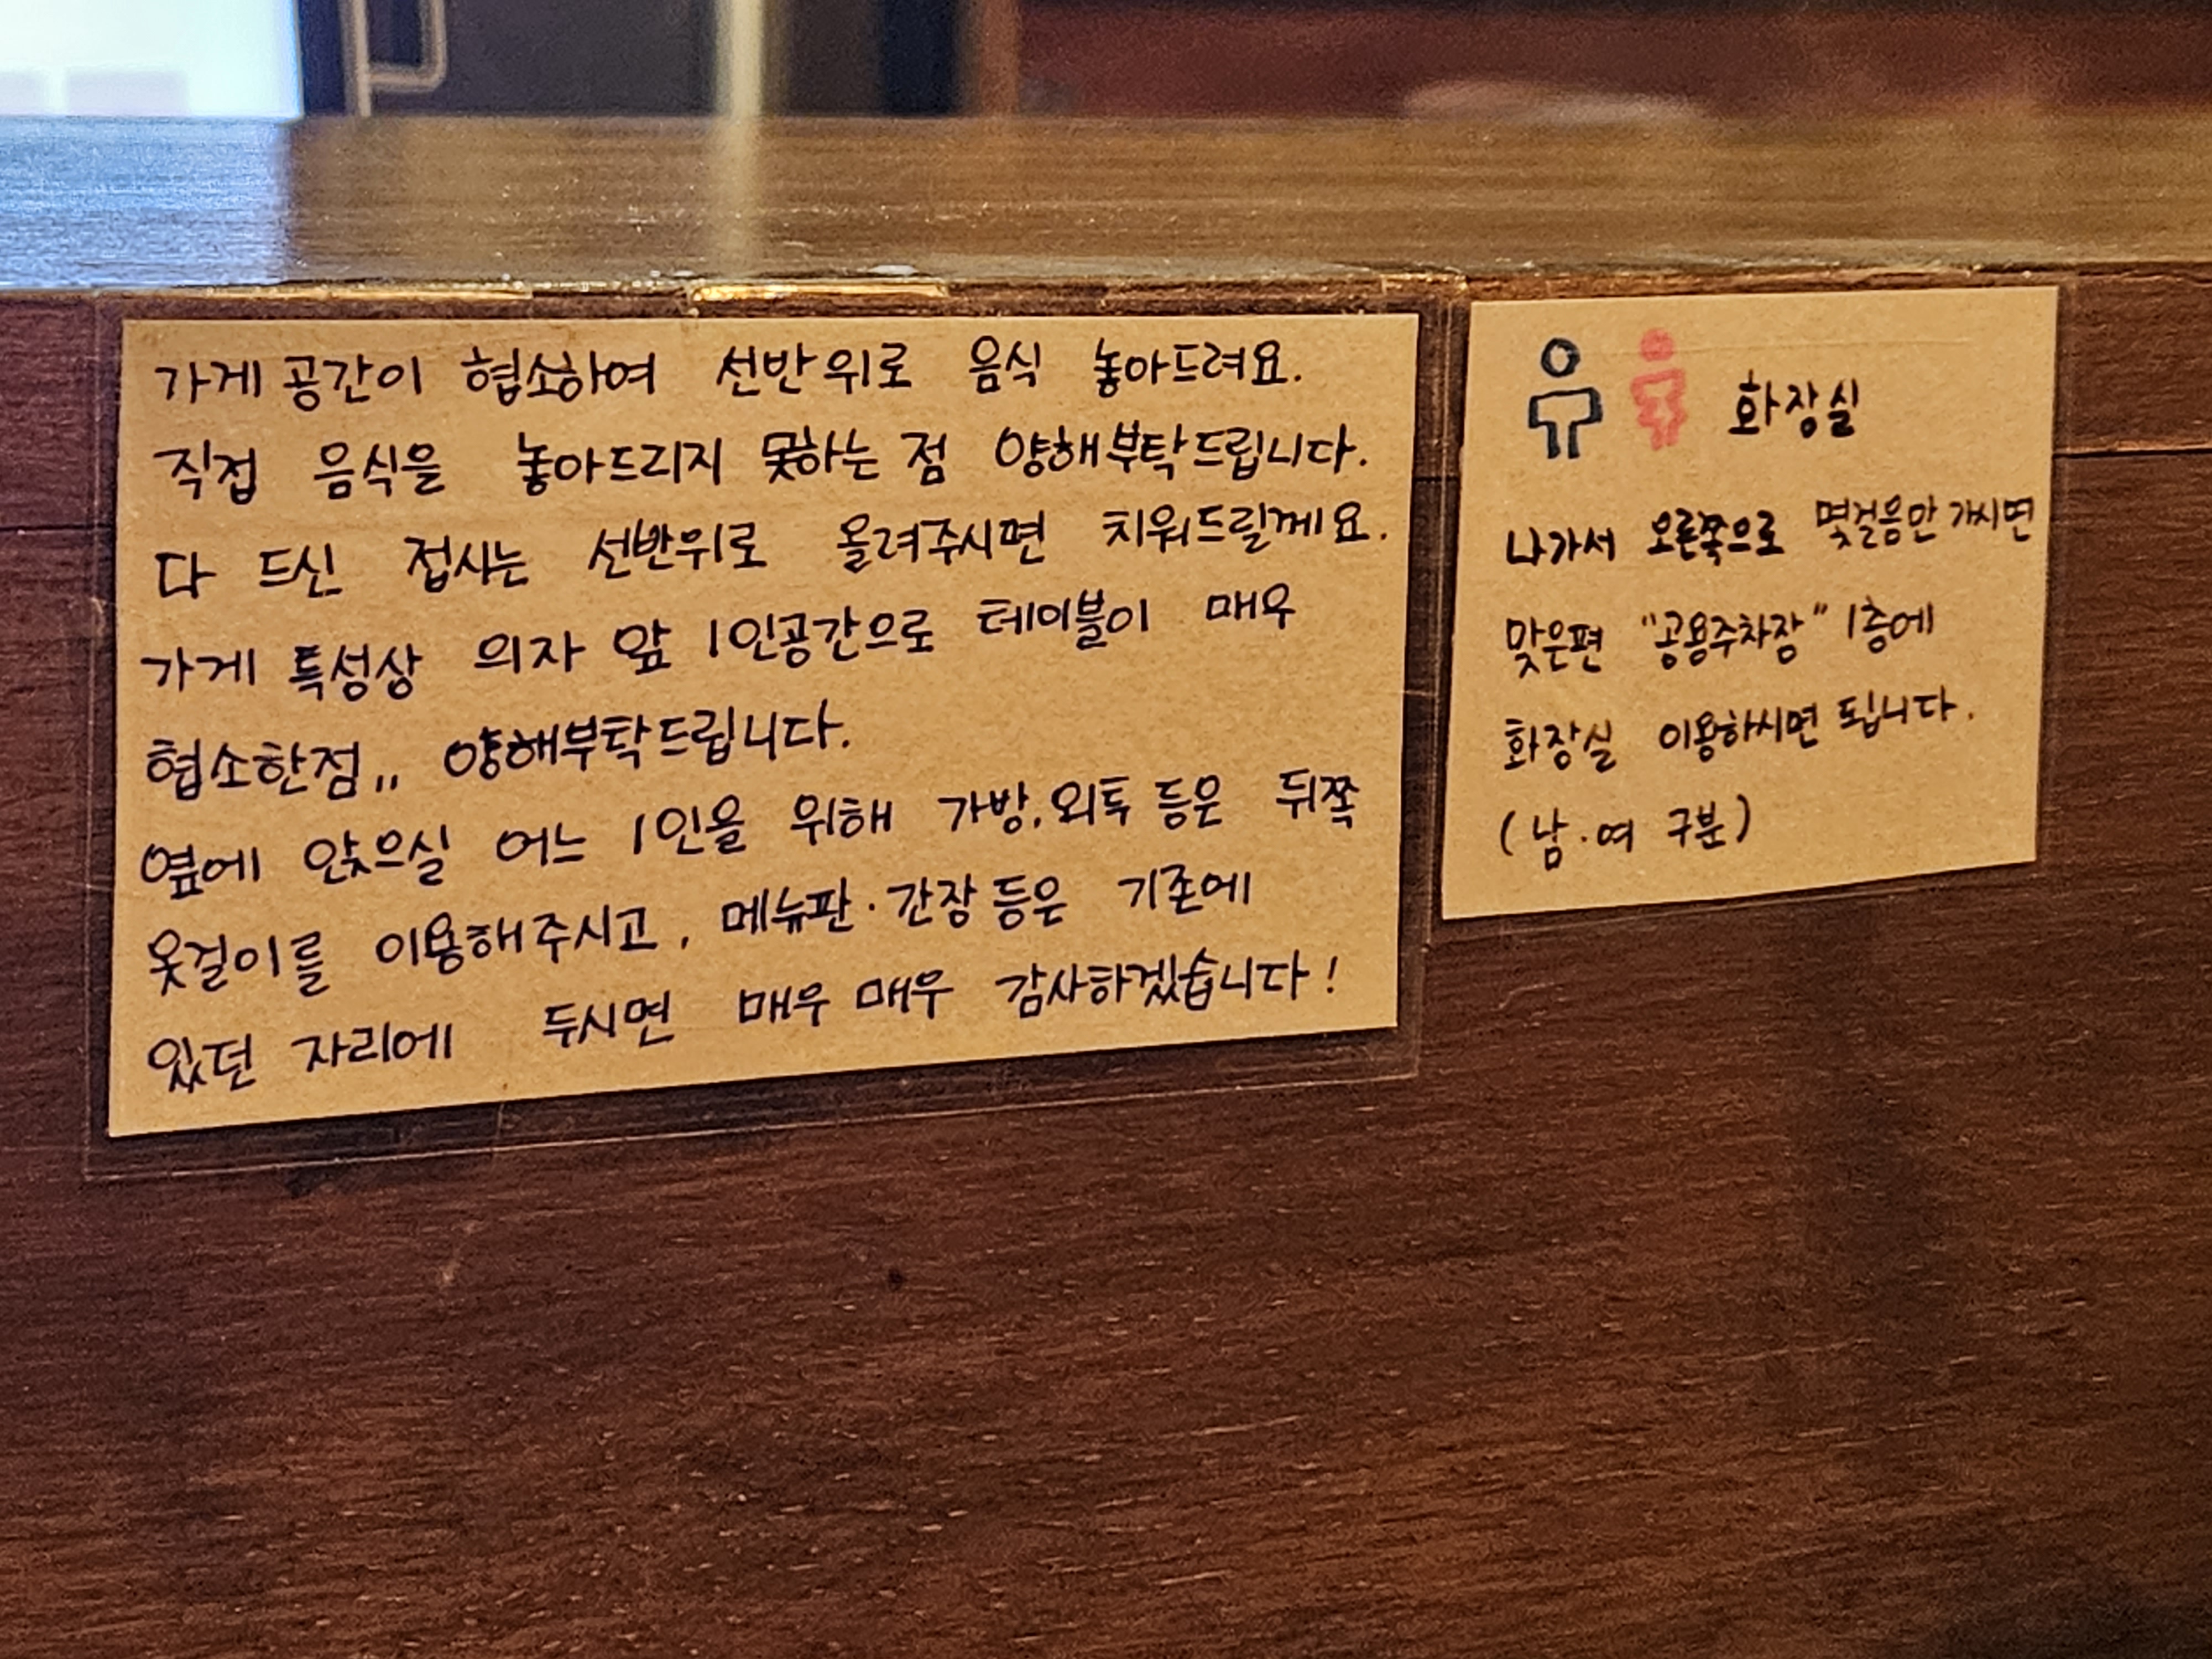 가게 공간이 협소하여 선반위로 음식 놓아드려요.
직접 음식을 놓아드리지 못하는 점 양해부탁드립니다.
다 드신 접시는 선반위로 올려주시면 치워드릴께요.
가게 특성상 의자 앞 1인공간으로 테이블이 매우
협소한점,, 양해부탁드립니다.
옆에 앉으실 어느 1인을 위해 가방, 외투 등은 뒤쪽
옷걸이를 이용해주시고, 메뉴판·간장 등은 기존에
있던 자리에 두시면 매우 매우 감사하겠습니다!
화장실
나가서 오른쪽으로 몇걸음만 가시면
맞은편 "공용주차장" 1층에
화장실 이용하시면 됩니다.
(남·여 구분)